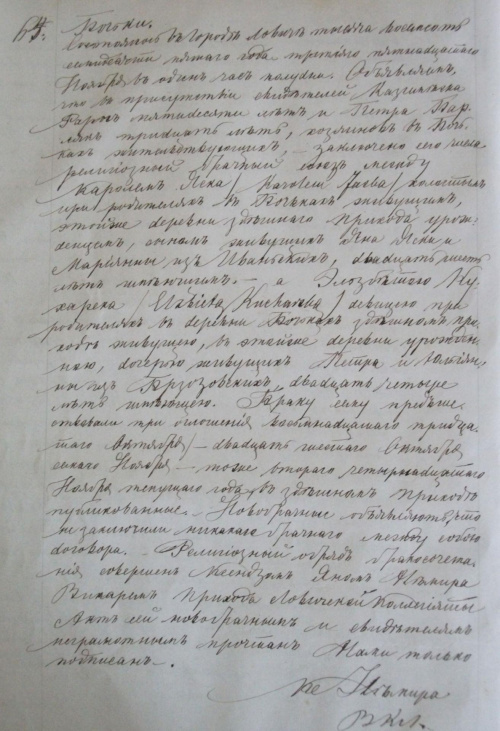 64.
Бочки.
Состоялось въ городѣ Ловичѣ тысяча восемсотъ
семидесяти пятаго года третіяго пятнадцатаго
Ноября въ одинъ часъ полудня. Объявляемъ,
что въ присутствіи свидѣтелей Казимежа
пятидесяти лѣтъ и Петра
тридцать лѣтъ, хозяиновъ въ Боч-
кахъ жительствующихъ, – заключено сего числа
религіозный брачный союзъ между
Каролемъ / Karolem / холостымъ
при родителяхъ въ Бочкахъ живущимъ,
этойже деревни здѣшняго прихода урож-
денцемъ, сыномъ живущихъ Яна и
Маріянны изъ двадцать шесть
лѣтъ имѣющимъ. – а Элзбѣтою Ку-
харека / Elżbieta / девицею при
родителяхъ въ деревни Бочкахъ здѣшномъ при-
ходѣ живущею, въ этойже деревни урожден-
ною, дочерью живущихъ Петра и Юліян-
ны изъ Брзозовскихъ, двадцать четыре
лѣтъ имѣющею. Браку сему предше-
ствовали три оглошенія восемнадцатаго тридца-
таго Октября / – двадцать шестаго Октября
седмаго Ноября – тоже втораго четырнадцатаго
Ноября текущаго года въ здѣшномъ приходѣ
публикованные. – Новобрачные объявляютъ, что
не заключили никакаго брачнаго между собою
договора. – Религіозный обрядъ бракосочета-
нія совершенъ Ксендзомъ Яномъ
Викаремъ прихода Ловичской Коллегіяты
Актъ сей новобрачнымъ и свидѣтелямъ
неграмотнымъ прочтанъ Нами только
подписанъ. –
Кс
В К Л.